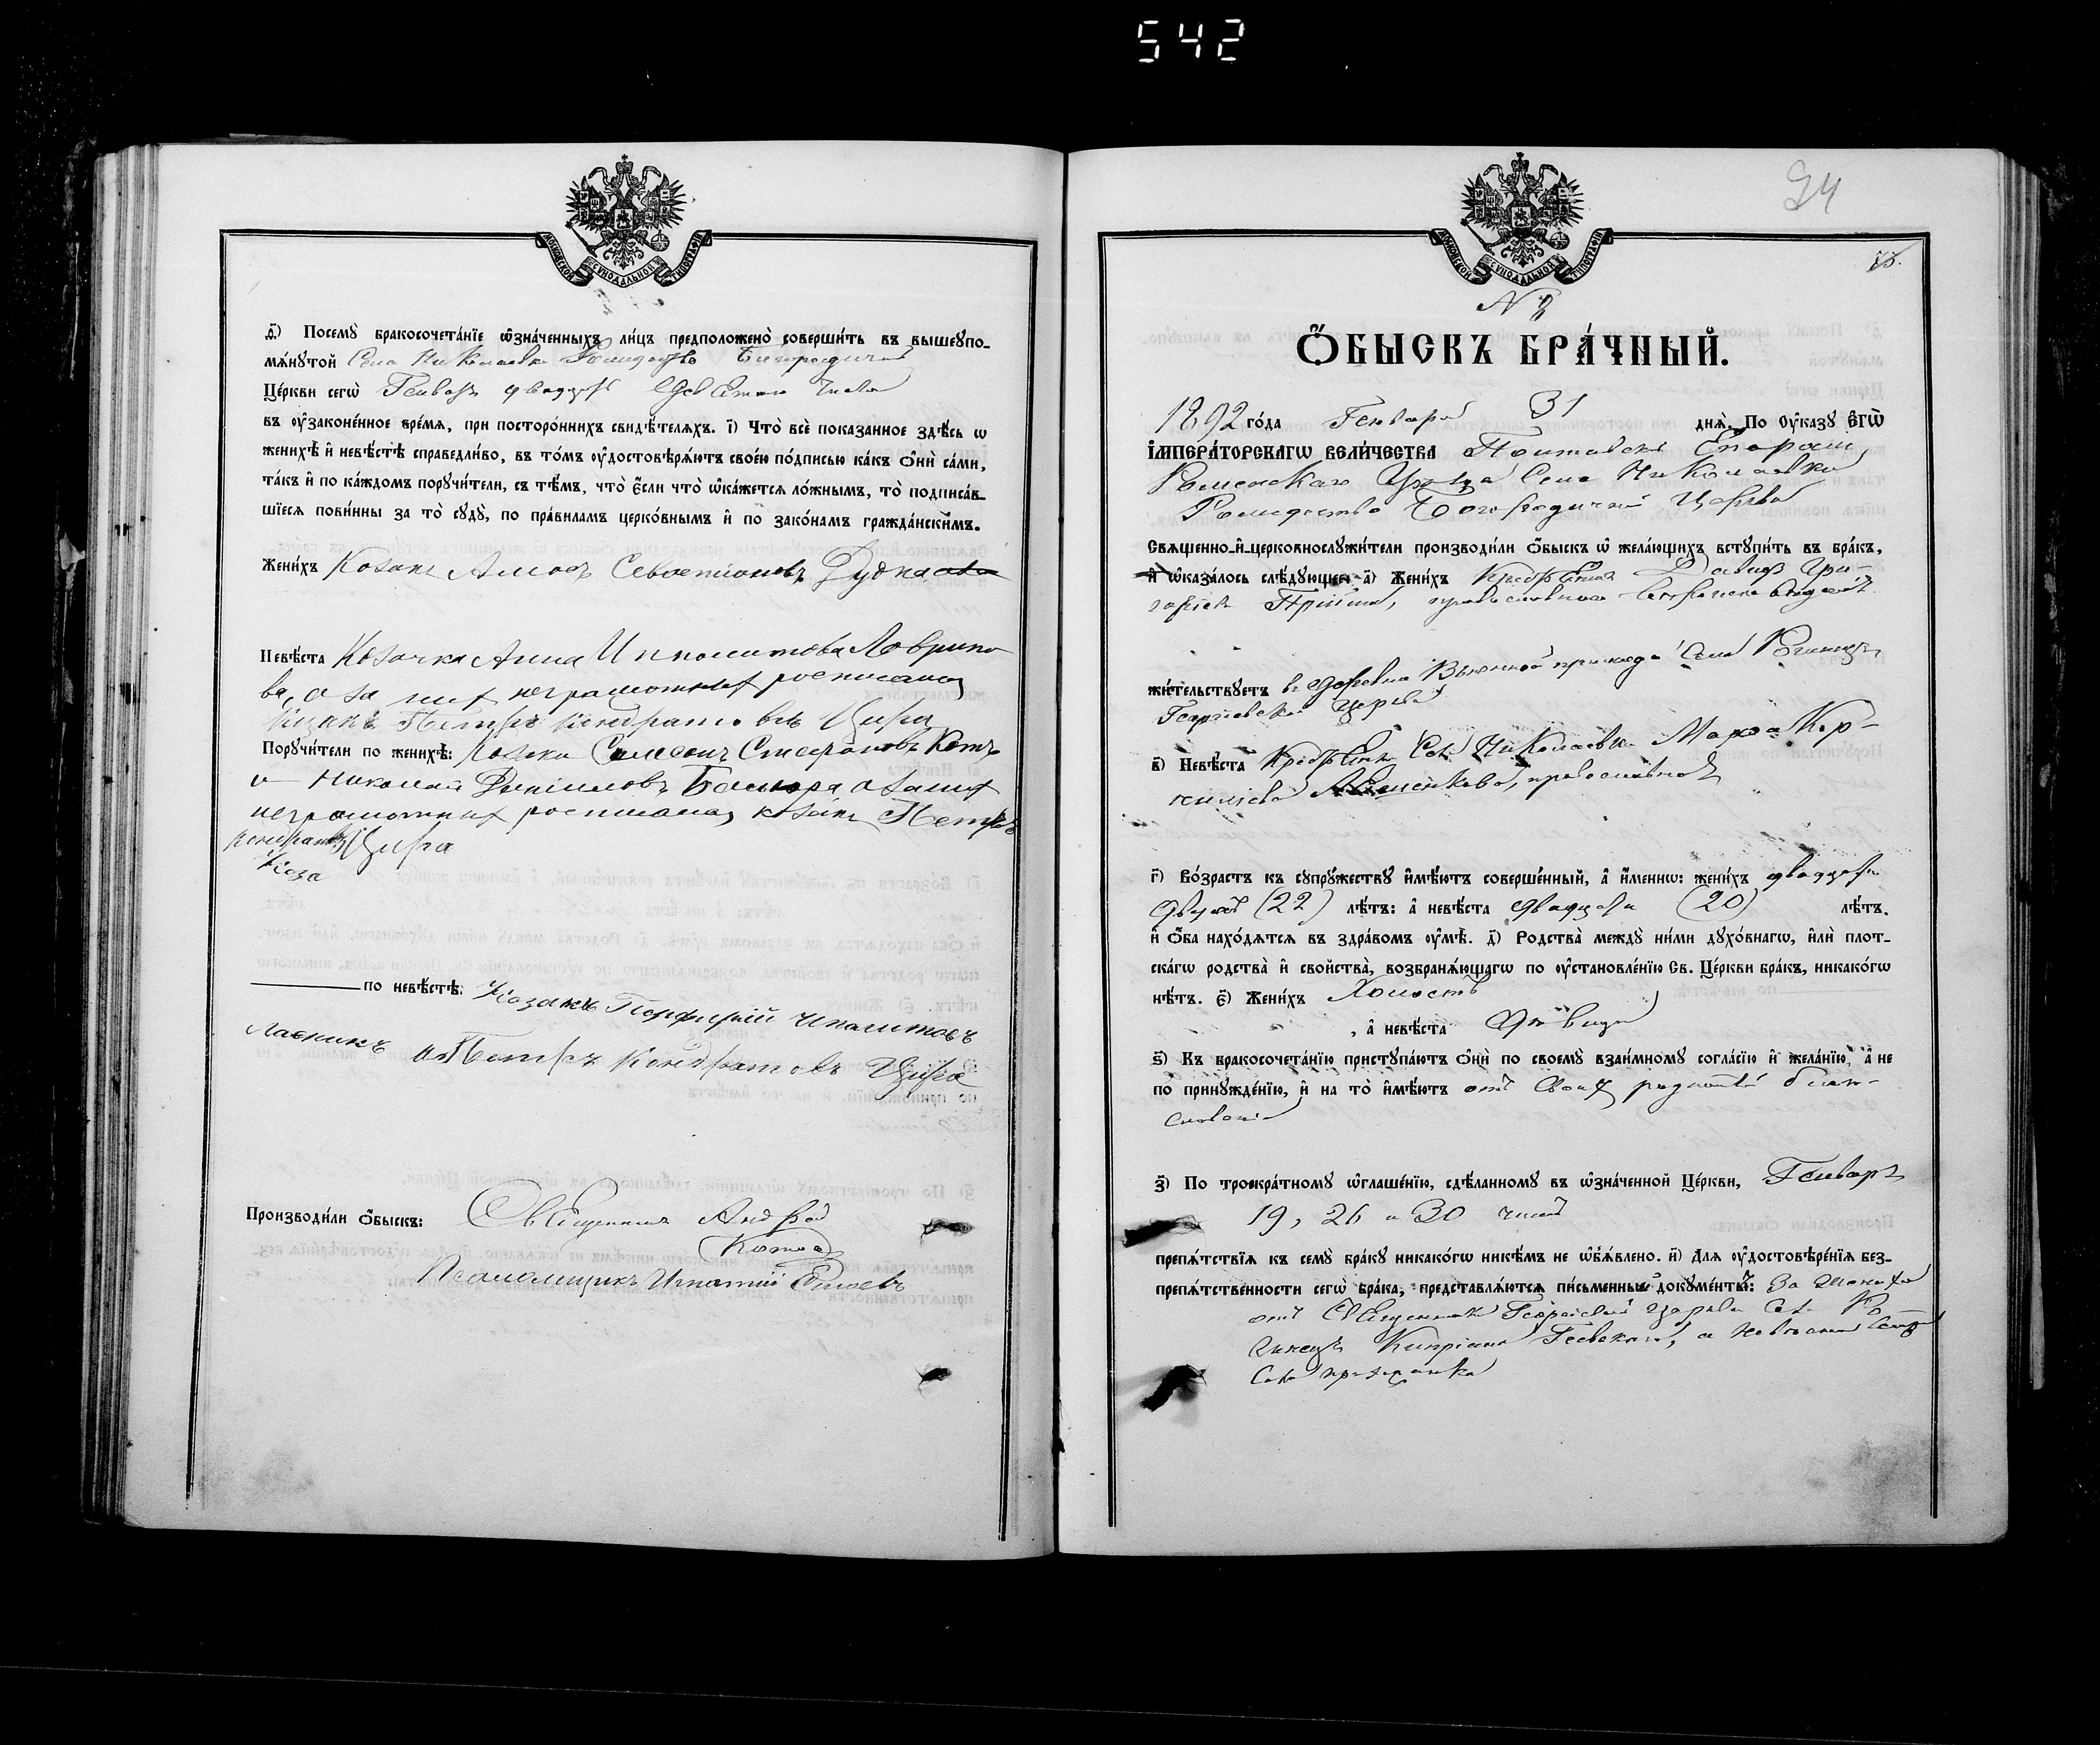 542
МОСКОВСКОЙ СѴНОДАЛЬНОЙ ТИПОГРАФІИ
ѳ҃) Посемꙋ̀ бракосочета́нїе ѡ҆зна́ченныхъ ли́цъ предположено̀ соверши́ть въ вышеꙋпо-
мѧ́нꙋтой Села Николаевки Рождество Богородичной
Це́ркви сегѡ̀ Генваря двадцать девятого числа
въ ᲂу҆законе́нное вре́мѧ, при посторо́ннихъ свидѣ́телѧхъ. і҃) Что̀ всѐ показанное здѣ́сь ѡ
женихѣ̀ и҆ невѣ́стѣ справедли́во, въ то́мъ ᲂу҆достовѣрѧ́ютъ свое́ю по́дписью ка́къ ѻ҆нѝ са́ми,
та́къ и҆ по ка́ждомъ порꙋчи́тели, съ тѣ́мъ, что̀ є҆́сли что̀ ѡ҆ка́жетсѧ ло́жнымъ, то̀ подписа́в-
шїесѧ пови́нны за то̀ сꙋдꙋ̀, по пра́виламъ церко́внымъ и҆ по зако́намъ гражда́нскимъ.
Жени́хъ Козакъ Амосъ Севостіоновъ Дудка
Невѣ́ста Козачка Анна Ипполитова Лаврино
ва, а за них неграмотных росписался
Козакъ Петръ Кондратовъ Цира
Порꙋчи́тели по женихѣ̀: козаки Самсонъ Стефановъ Котъ
и Николай а за них
неграмотных росписался козакъ Петръ
Кондратовъ Цира
Коза
по невѣ́стѣ: Козакъ Порфирій Иполитовъ
и Петръ Кондратовъ Цира
Производи́ли ѻ҆́быскъ: Священникъ Андрей
Котов
Псаломщикъ Игнатій
МОСКОВСКОЙ СѴНОДАЛЬНОЙ ТИПОГРАФІИ
94
N 8
Ѻ҆́БЫСКЪ БРА́ЧНЫЙ.
1892 го́да Генваря 31 днѧ̀. По ᲂу҆ка́зꙋ Є҆гѡ̀
І҆мпера́торскагѡ вели́чества Полтавской Епархіи
Роменскаго Уѣзда Села Николаевки
Рождество Богородичной Церкви
Свѧщенно-и҆-церковнослꙋжи́тели производи́ли ѻ҆́быскъ ѡ҆ жела́ющихъ встꙋпи́ть въ бра́къ,
и҆ ѡ҆каза́лось слѣ́дꙋющее: а҃) Жени́хъ Давид Гри-
горіевъ православнаго вѣроисповѣданія
жи́тельствꙋетъ въ деревнѣ прихода Села Рогинец
Георгіевской церкви
в҃) Невѣ́ста Села Николаевки Марфа Кор-
ниліева православной
г҃) Во́зрастъ къ сꙋпрꙋ́жествꙋ и҆мѣ́ютъ соверше́нный, а҆ и҆́меннѡ: жени́хъ двадцати
двухъ (22) лѣ́тъ: а҆ невѣ́ста двадцати (20) лѣ́тъ.
и҆ ѻ҆́ба нахо́дѧтсѧ въ здра́вомъ ᲂу҆мѣ̀. д҃) Родства̀ междꙋ̀ ни́ми дꙋхо́внагѡ, и҆лѝ плот-
ска́гѡ родства̀ и҆ сво́йства̀, возбранѧ́ющагѡ по ᲂу҆становле́нїю Св. Це́ркви бра́къ, никако́гѡ
нѣ́тъ. є҃) Жени́хъ Холостъ
, а҆ невѣ́ста Дѣвица
ѕ҃) Къ бракосочета́нїю пристꙋпа́ютъ ѻ҆нѝ по своемꙋ̀ взаи́мномꙋ согла́сїю и҆ жела́нїю, а҆ не
по принꙋжде́нїю, и҆ на то̀ и҆мѣ́ютъ отъ Своих родителей благо-
словеніе
з҃) По троекра́тномꙋ ѡ҆глаше́нїю, сдѣ́ланномꙋ въ ѡ҆зна́ченной Це́ркви, Генваря
19, 26 и 30 чиселъ
препѧ́тствїѧ къ семꙋ̀ бра́кꙋ никако́гѡ никѣ́мъ не ѡ҆б̾ѧ́влено. и҃) Для ᲂу҆достовѣре́нїѧ без-
препѧ́тственности сегѡ̀ бра́ка, представлѧ́ютсѧ пи́сьменные докꙋме́нты: За жениха
отъ Священника Георгіевской церкви Села Ро-
гинецъ Кипріана а невѣста сего
Села прихожанка